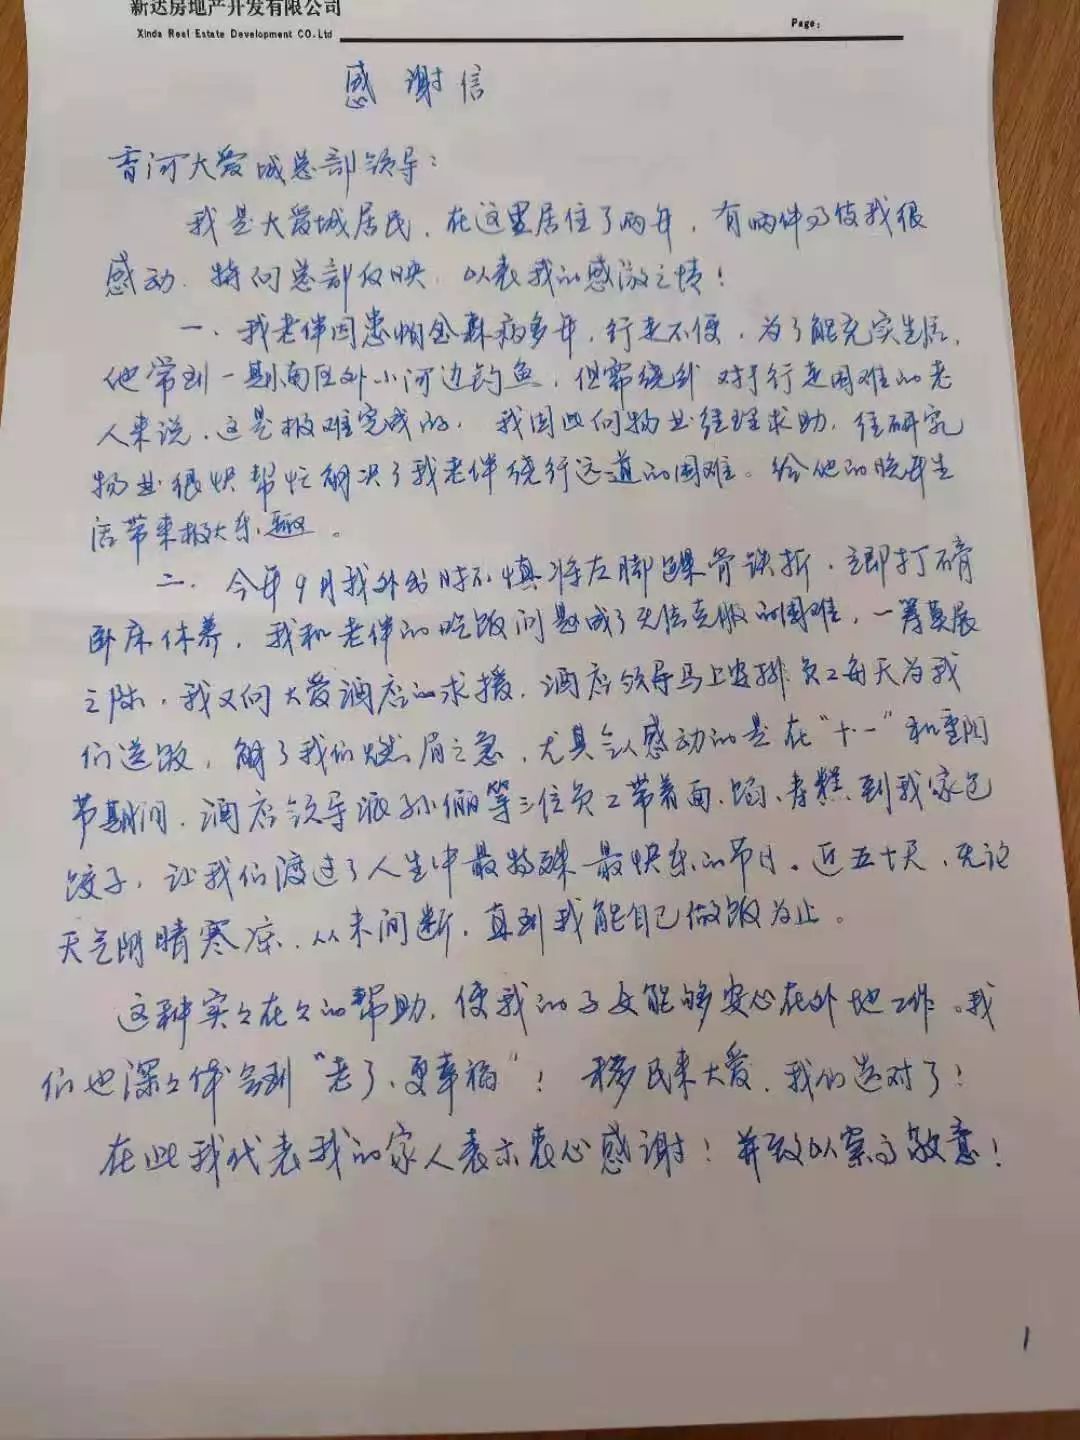 新达房地产开发有限公司
Xinda Real Estate Development CO.Ltd
Page:
感谢信
香河大爱城总部领导:
我是大爱城居民,在这里居住了两年,有两件事使我很
感动,特向总部反映,以表我的感激之情!
一、我老伴因患帕金森病多年,行走不便,为了能充实生活,
他常到一期南区外小河边钓鱼,但需绕行 对于行走困难的老
人来说,这是极难完成的,我因此向物业经理求助,经研究
物业很快帮忙解决了我老伴绕行远道的困难。给他的晚年生
活带来极大乐趣。
二、今年9月我外出时不慎将左脚踝骨跌折,立即打石膏
卧床休养,我和老伴的吃饭问题成了无法克服的困难,一筹莫展
之际,我又向大爱酒店的求援,酒店领导马上安排员工每天为我
们送饭,解了我们燃眉之急,尤其令人感动的是在“十·一”和重阳
节期间,酒店领导派孙俪等三位员工带着面、馅、寿糕到我家包
饺子,让我们渡过了人生中最特殊 最快乐的节日。近五十天,无论
天气阴晴寒凉,从未间断,直到我能自己做饭为止。
这种实々在々的帮助,使我的子女能够安心在外地工作。我
们也深々体会到“老了、更幸福”! 移民来大爱,我们选对了!
在此我代表我的家人表示衷心感谢!并致以崇高敬意!
1